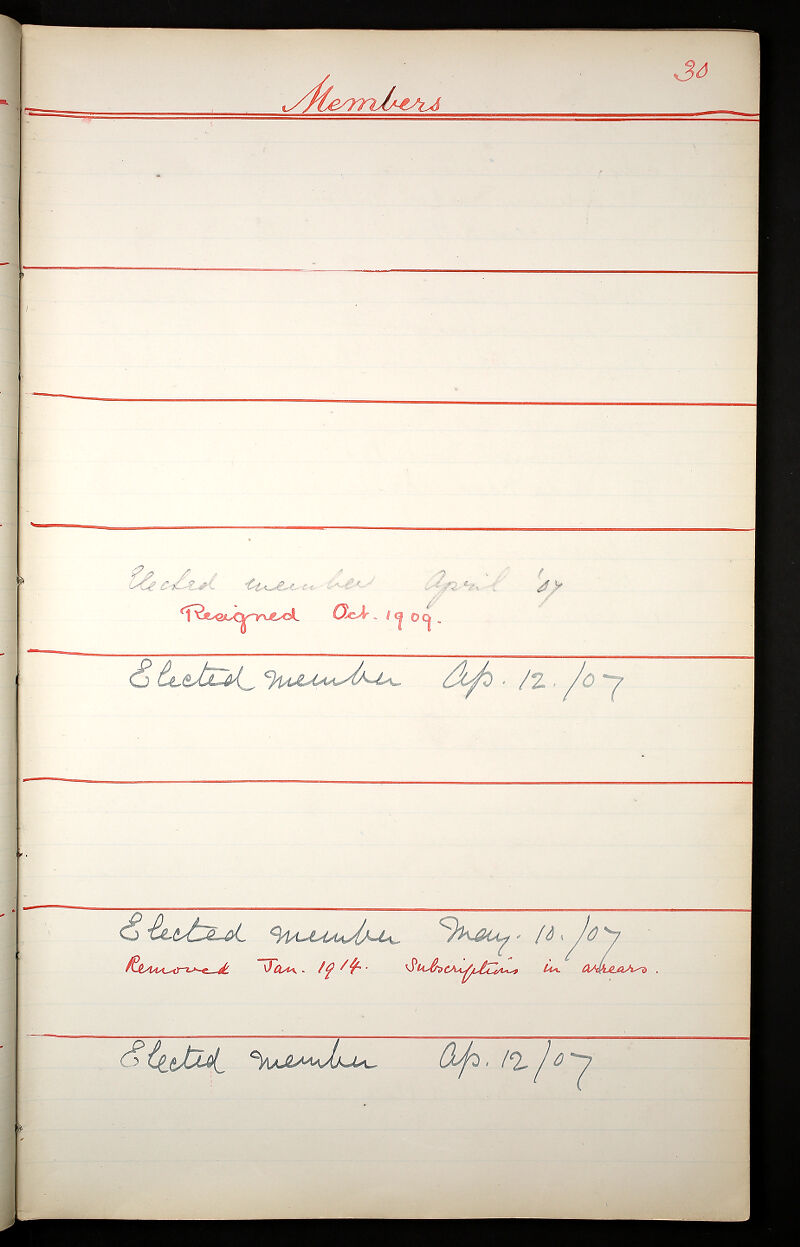 30
Members
Elected member April '07
Resigned Oct. 1909.
Elected member Ap. 12./07
Elected member May. 10./07
Removed Jan. 1914. Subscriptions in arrears.
Elected member Ap. 12/07